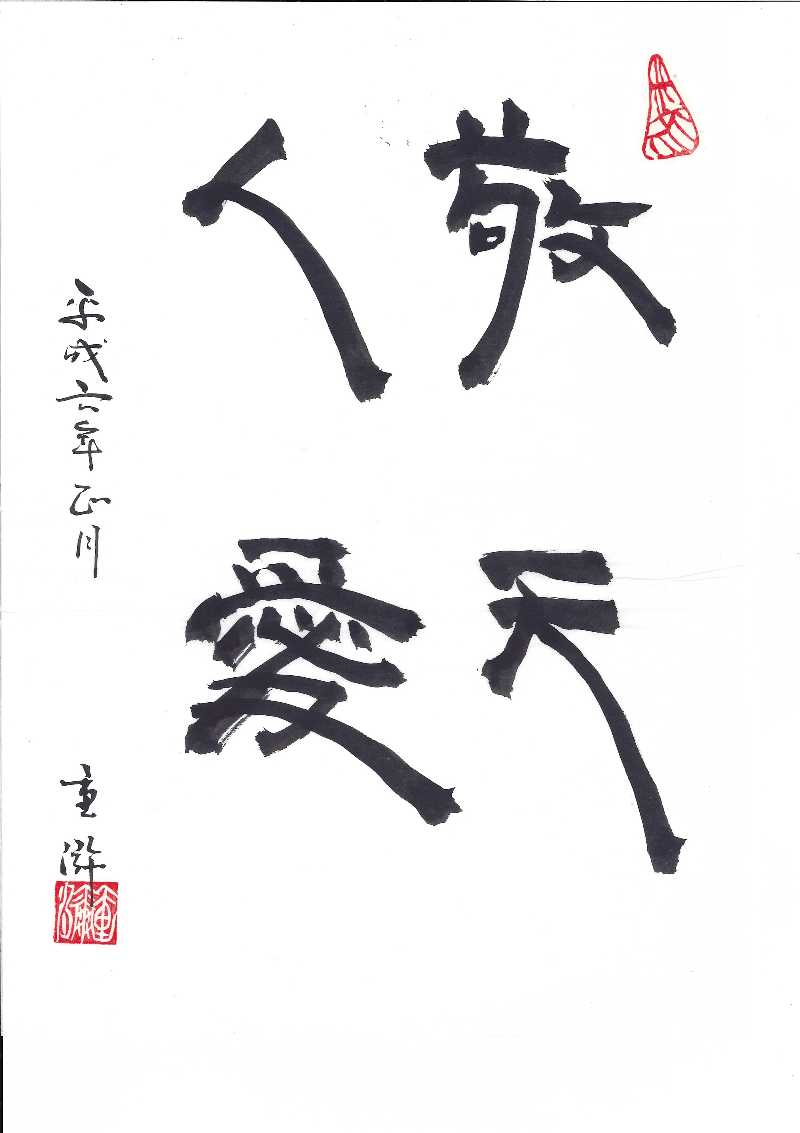 敬天
愛人
平成六年正月
重